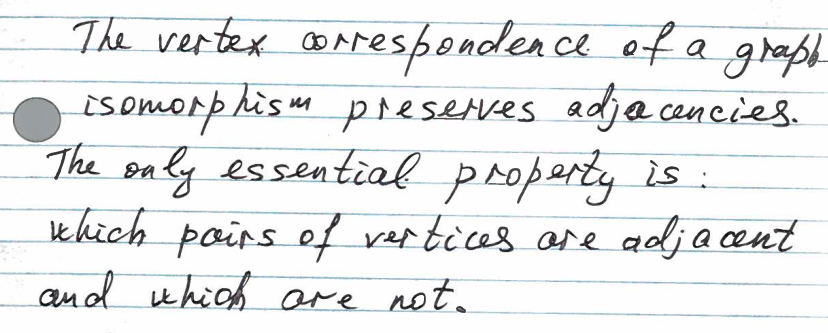 The vertex correspondence of a graph
isomorphism preserves adjacencies.
The only essential property is :
which pairs of vertices are adjacent
and which are not.